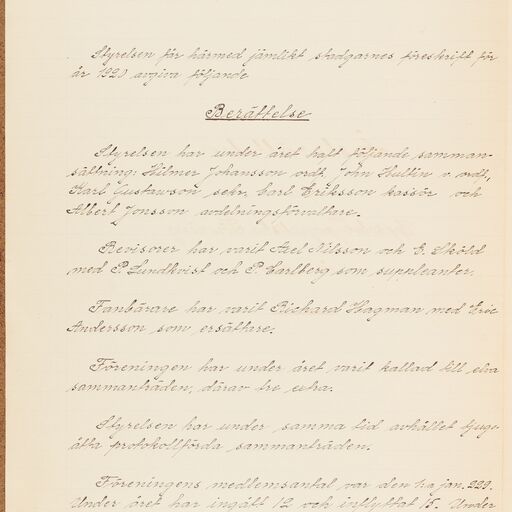 Styrelsen får härmed jämlikt stadgarnes föreskrift för
år 1920 avgiva följande
Berättelse.
Styrelsen har under året haft följande samman-
sättning: Hilmer Johansson ordf. John Hultin v. ordf.,
Karl Gustawson sekr. Carl Eriksson kassör och
Albert Jonsson avdelningsförvaltare.
Revisorer har varit Axel Nilsson och E. Sköld
med P. Lundkvist och P. Carlberg som suppleanter.
Fanbärare har varit Rickard Hagman med Eric
Andersson som ersättare.
Föreningen har under året varit kallad till elva
sammanträden, därav tre extra.
Styrelsen har under samma tid avhållet tjugo-
åtta protokollförda sammanträden.
Föreningens medlemsantal var den 1:a jan. 229.
Under året har ingått 12 och inflyttat 15. Under